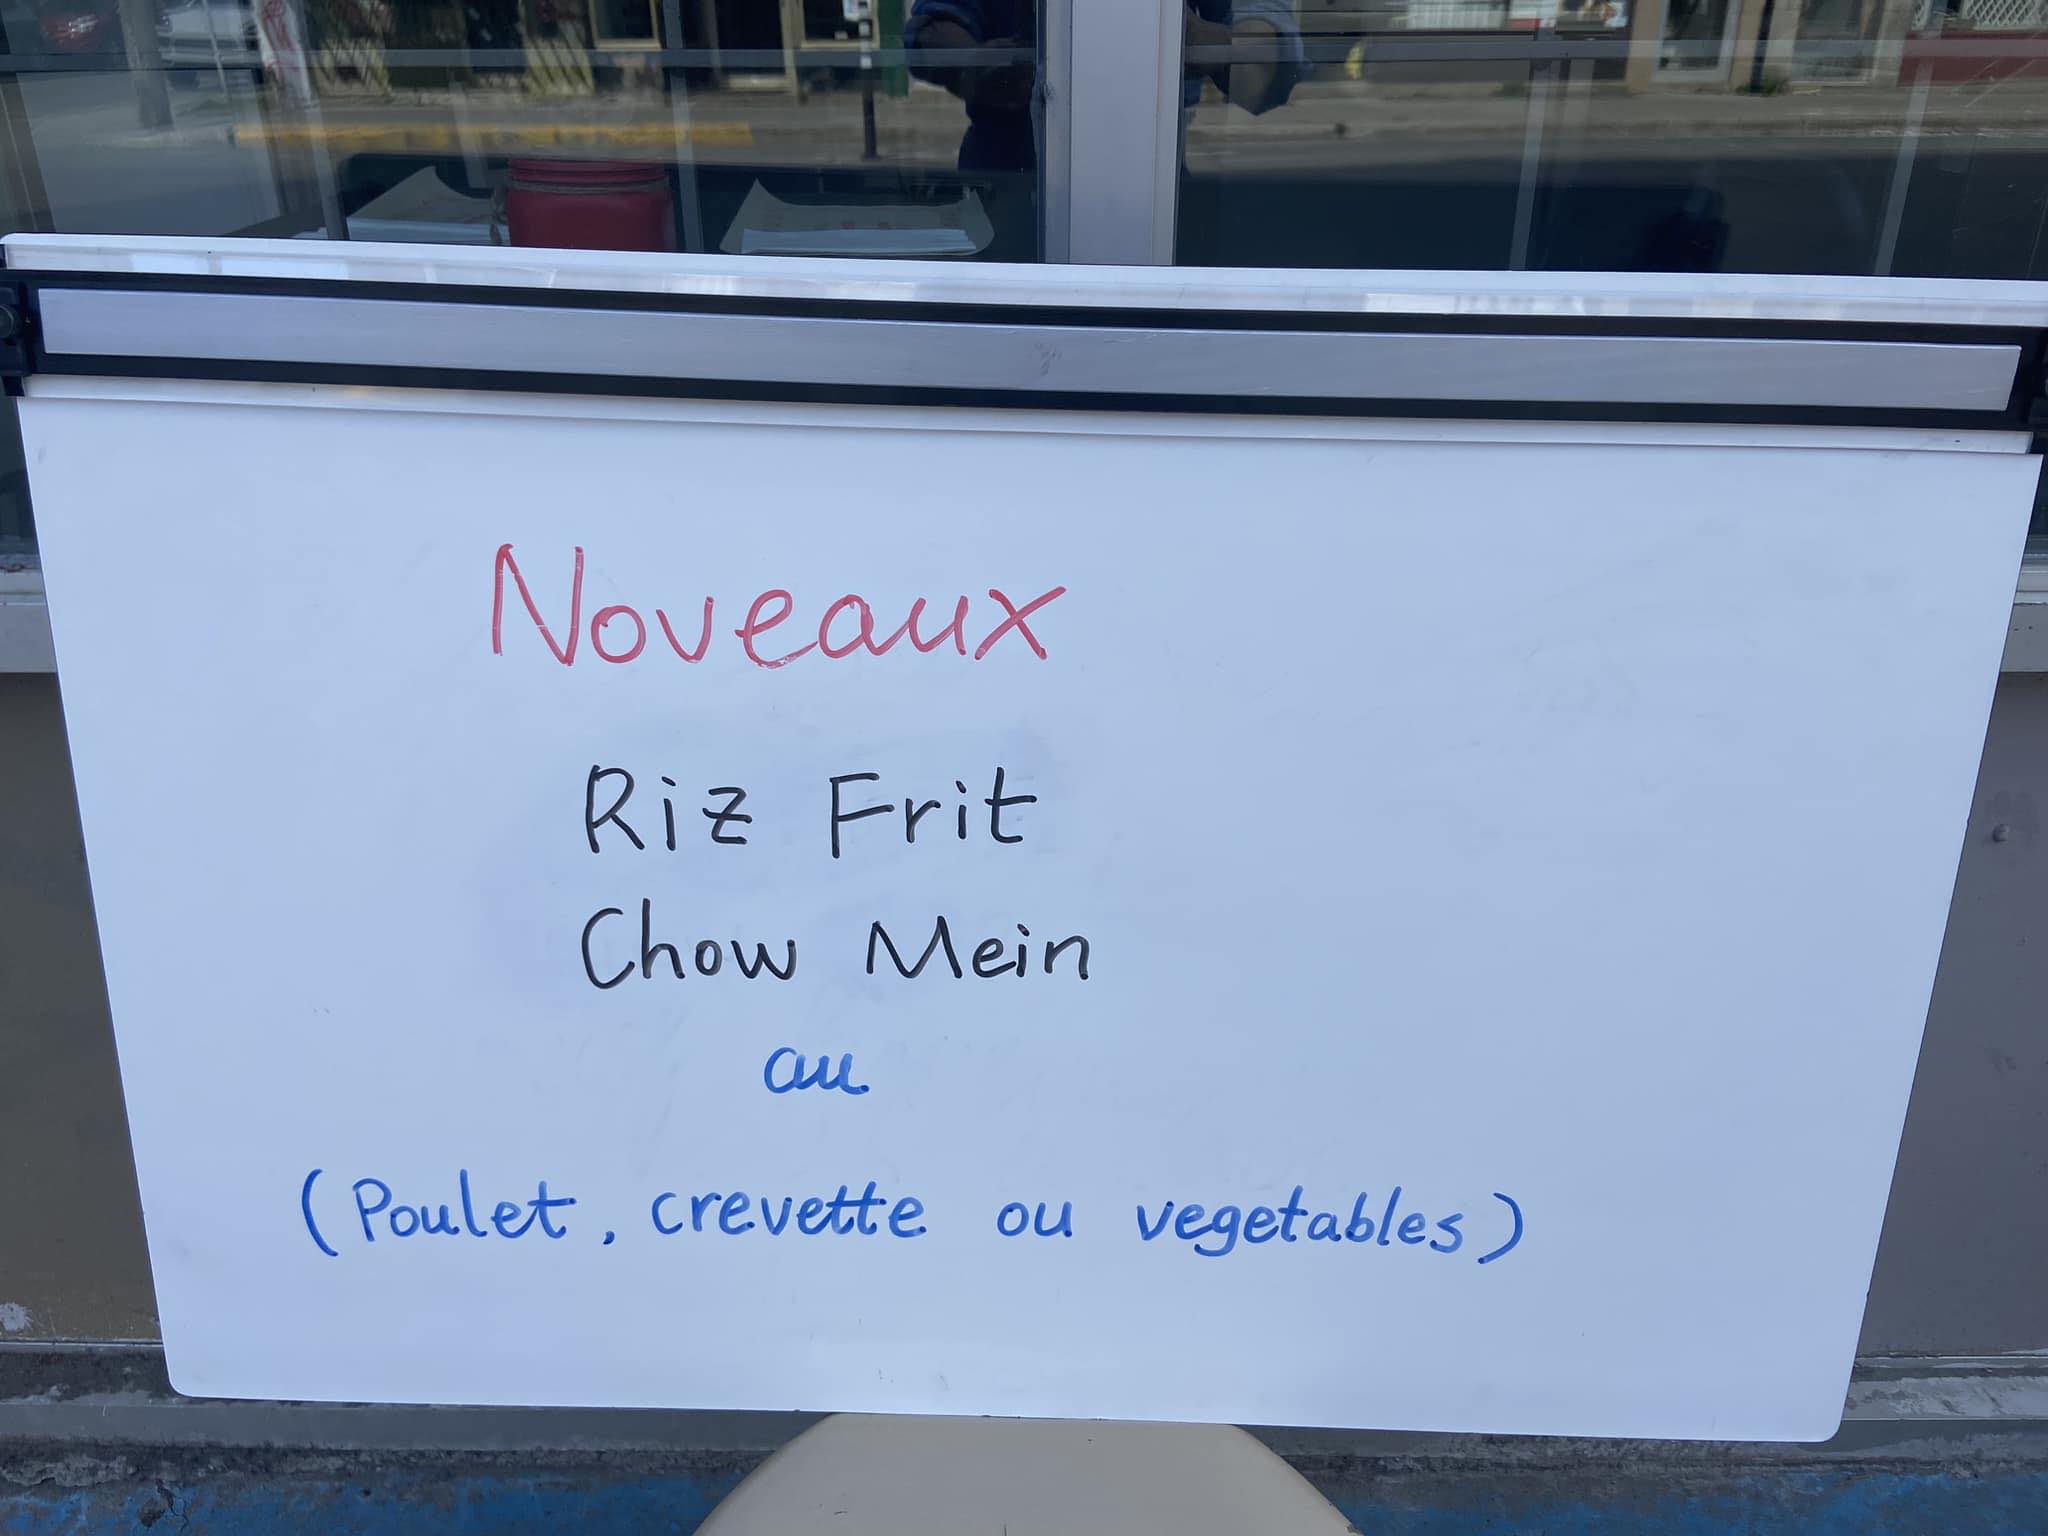 Noveaux
Riz Frit
Chow Mein
au
(Poulet, crevette ou vegetables)